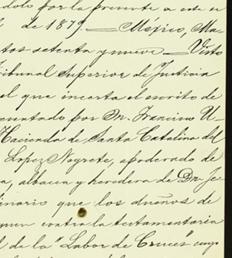 dolo por la presente a este e
l de 1879. — México, Ma-
tos setenta y nueve. — Visto
ribunal Superior de Justicia
el que inserta el escrito de
sentado por Dn. Francisco U-
Hacienda de Santa Catalina del
Lopez Negrete, apoderado de
a, albacea y heredera de Dn. Je-
dinario que los dueños de
guen contra la testamentaria
d de la "Labor de Cruces" cuyo